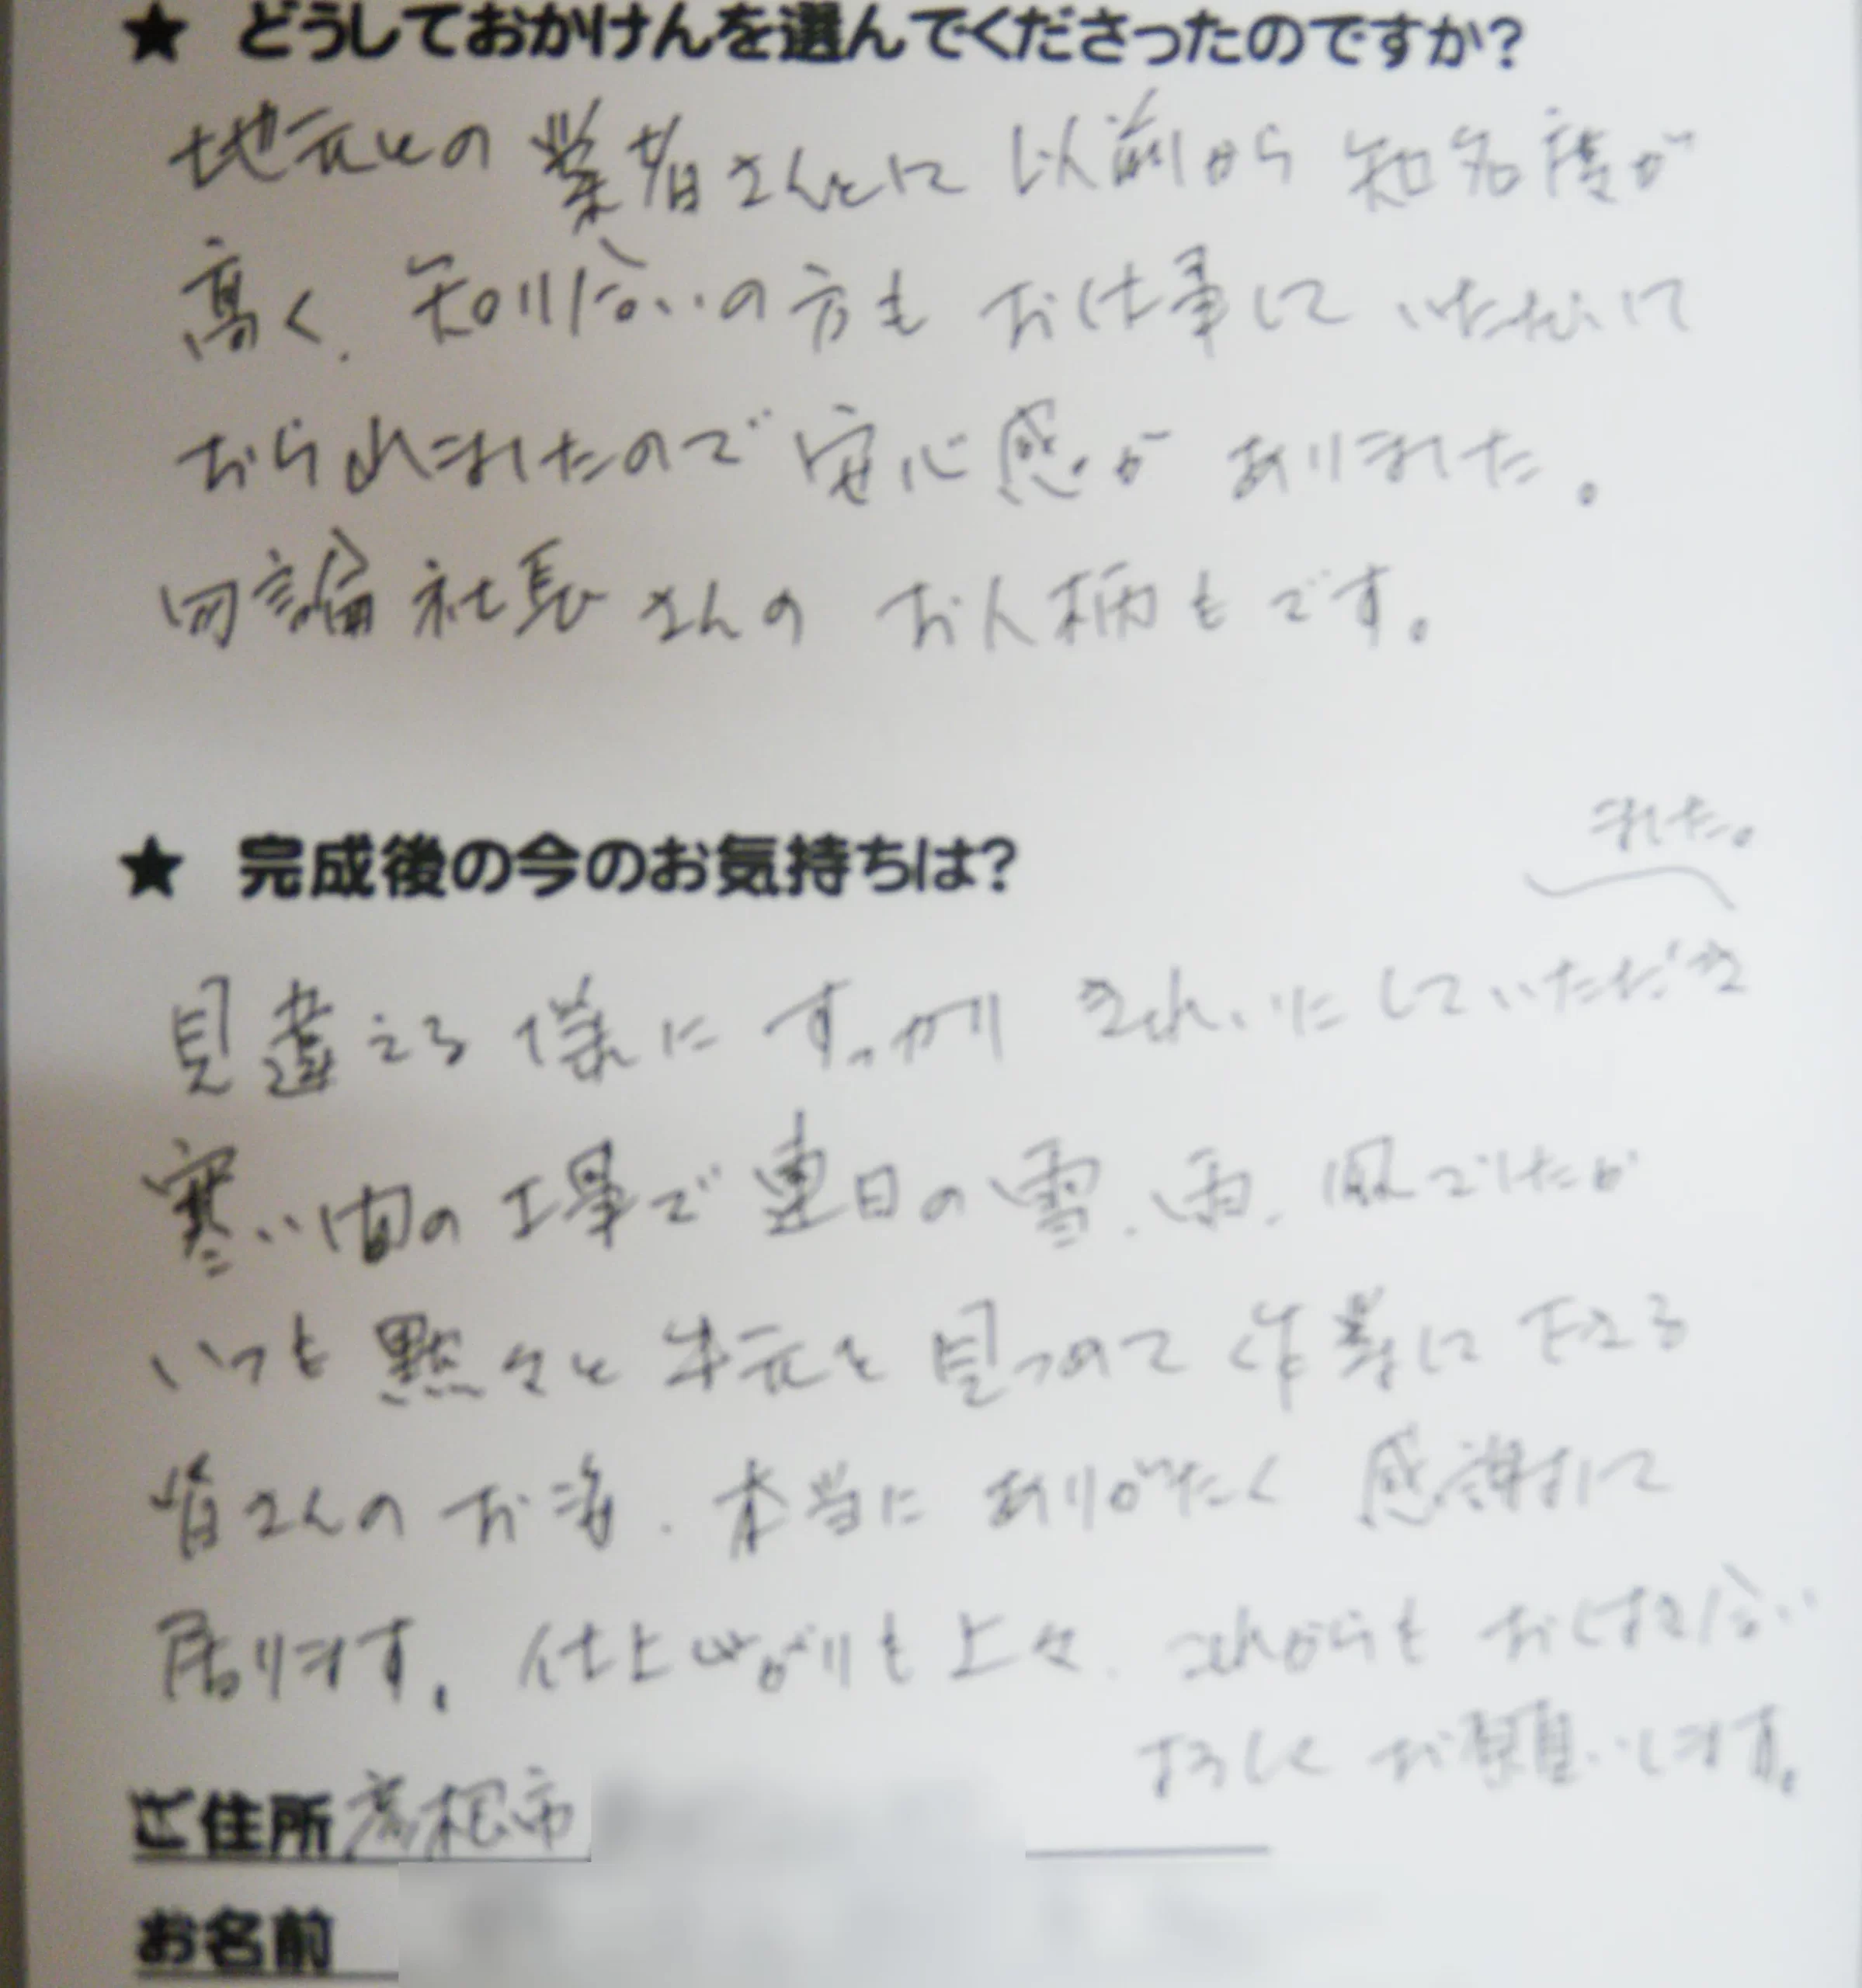 ★ どうしておかけんを選んでくださったのですか?
地元の業者さんに以前から知名度が
高く、知り合いの方もお仕事していただいて
おられましたので安心感がありました。
勿論社長さんのお人柄もです。
★ 完成後の今のお気持ちは?
見違える様にすっかりきれいにしていただき
ました。
寒い間の工事で連日の雪、雨、風でしたが
いつも黙々と足元を見つめて作業に下さる
皆さんのお姿、本当にありがたく感謝して
居ります。仕上がりも上々、これからもおつき合い
よろしくお願いします。
ご住所 彦根市
お名前